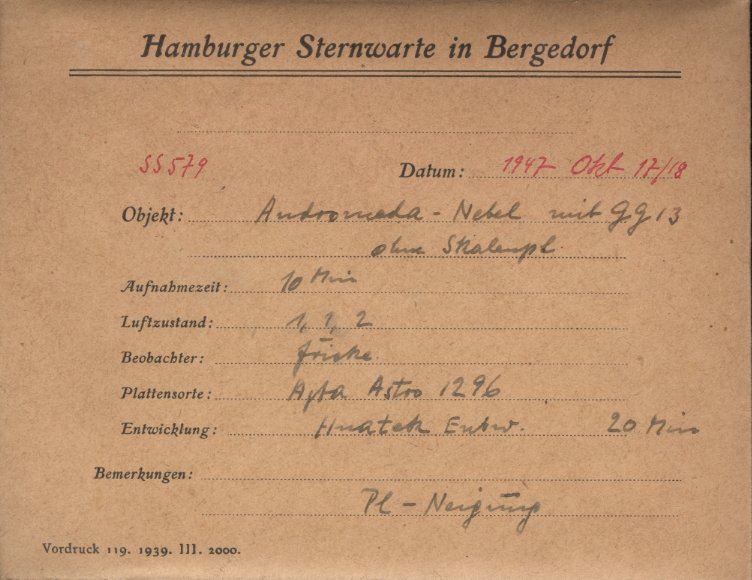 Hamburger Sternwarte in Bergedorf
SS579 Datum: 1947 Okt 17/18
Objekt: Andromeda-Nebel mit GG 13
ohne Skalenpl.
Aufnahmezeit: 10 Min
Luftzustand: 1, 1, 2
Beobachter: Fricke
Plattensorte: Agfa Astro 1296
Entwicklung: Hnatek Entw. 20 Min
Bemerkungen:
Pl-Neigung
Vordruck 119. 1939. III. 2000.